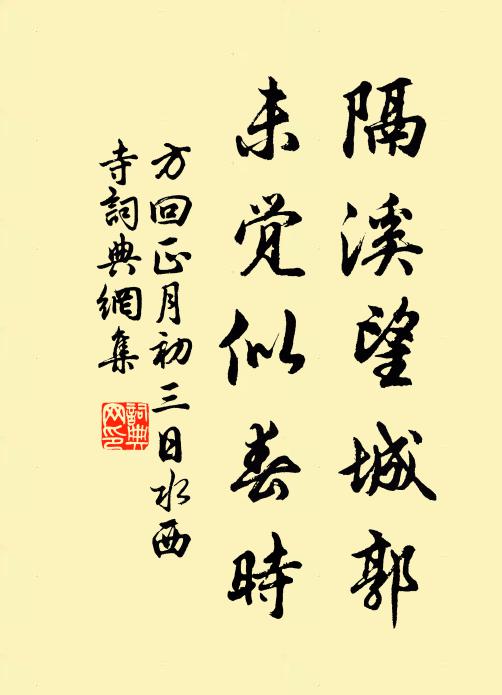 隔溪望城郭
未觉似春時
方回正月初三日水西
寺詞典網集
詞典
网印